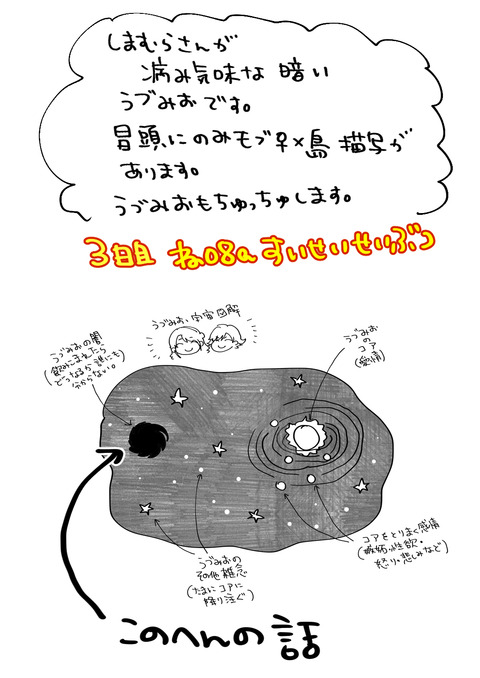 しまむらさんが
病み気味な暗い
うづみおです。
冒頭にのみモブ♀×島描写が
あります。
うづみおもちゅっちゅします。
3日目 ね08a すいせいせいぶつ
うづみお宇宙図解
うづみおの闇
(飲みこまれたら
どうなるか誰にも
分からない。)
うづみお
の
コア
(愛情)
うづみおの
その他雑念
(たまにコアに
降り注ぐ)
コアをとりまく感情
(嫉妬・性欲・
怒り・悲しみなど)
このへんの話